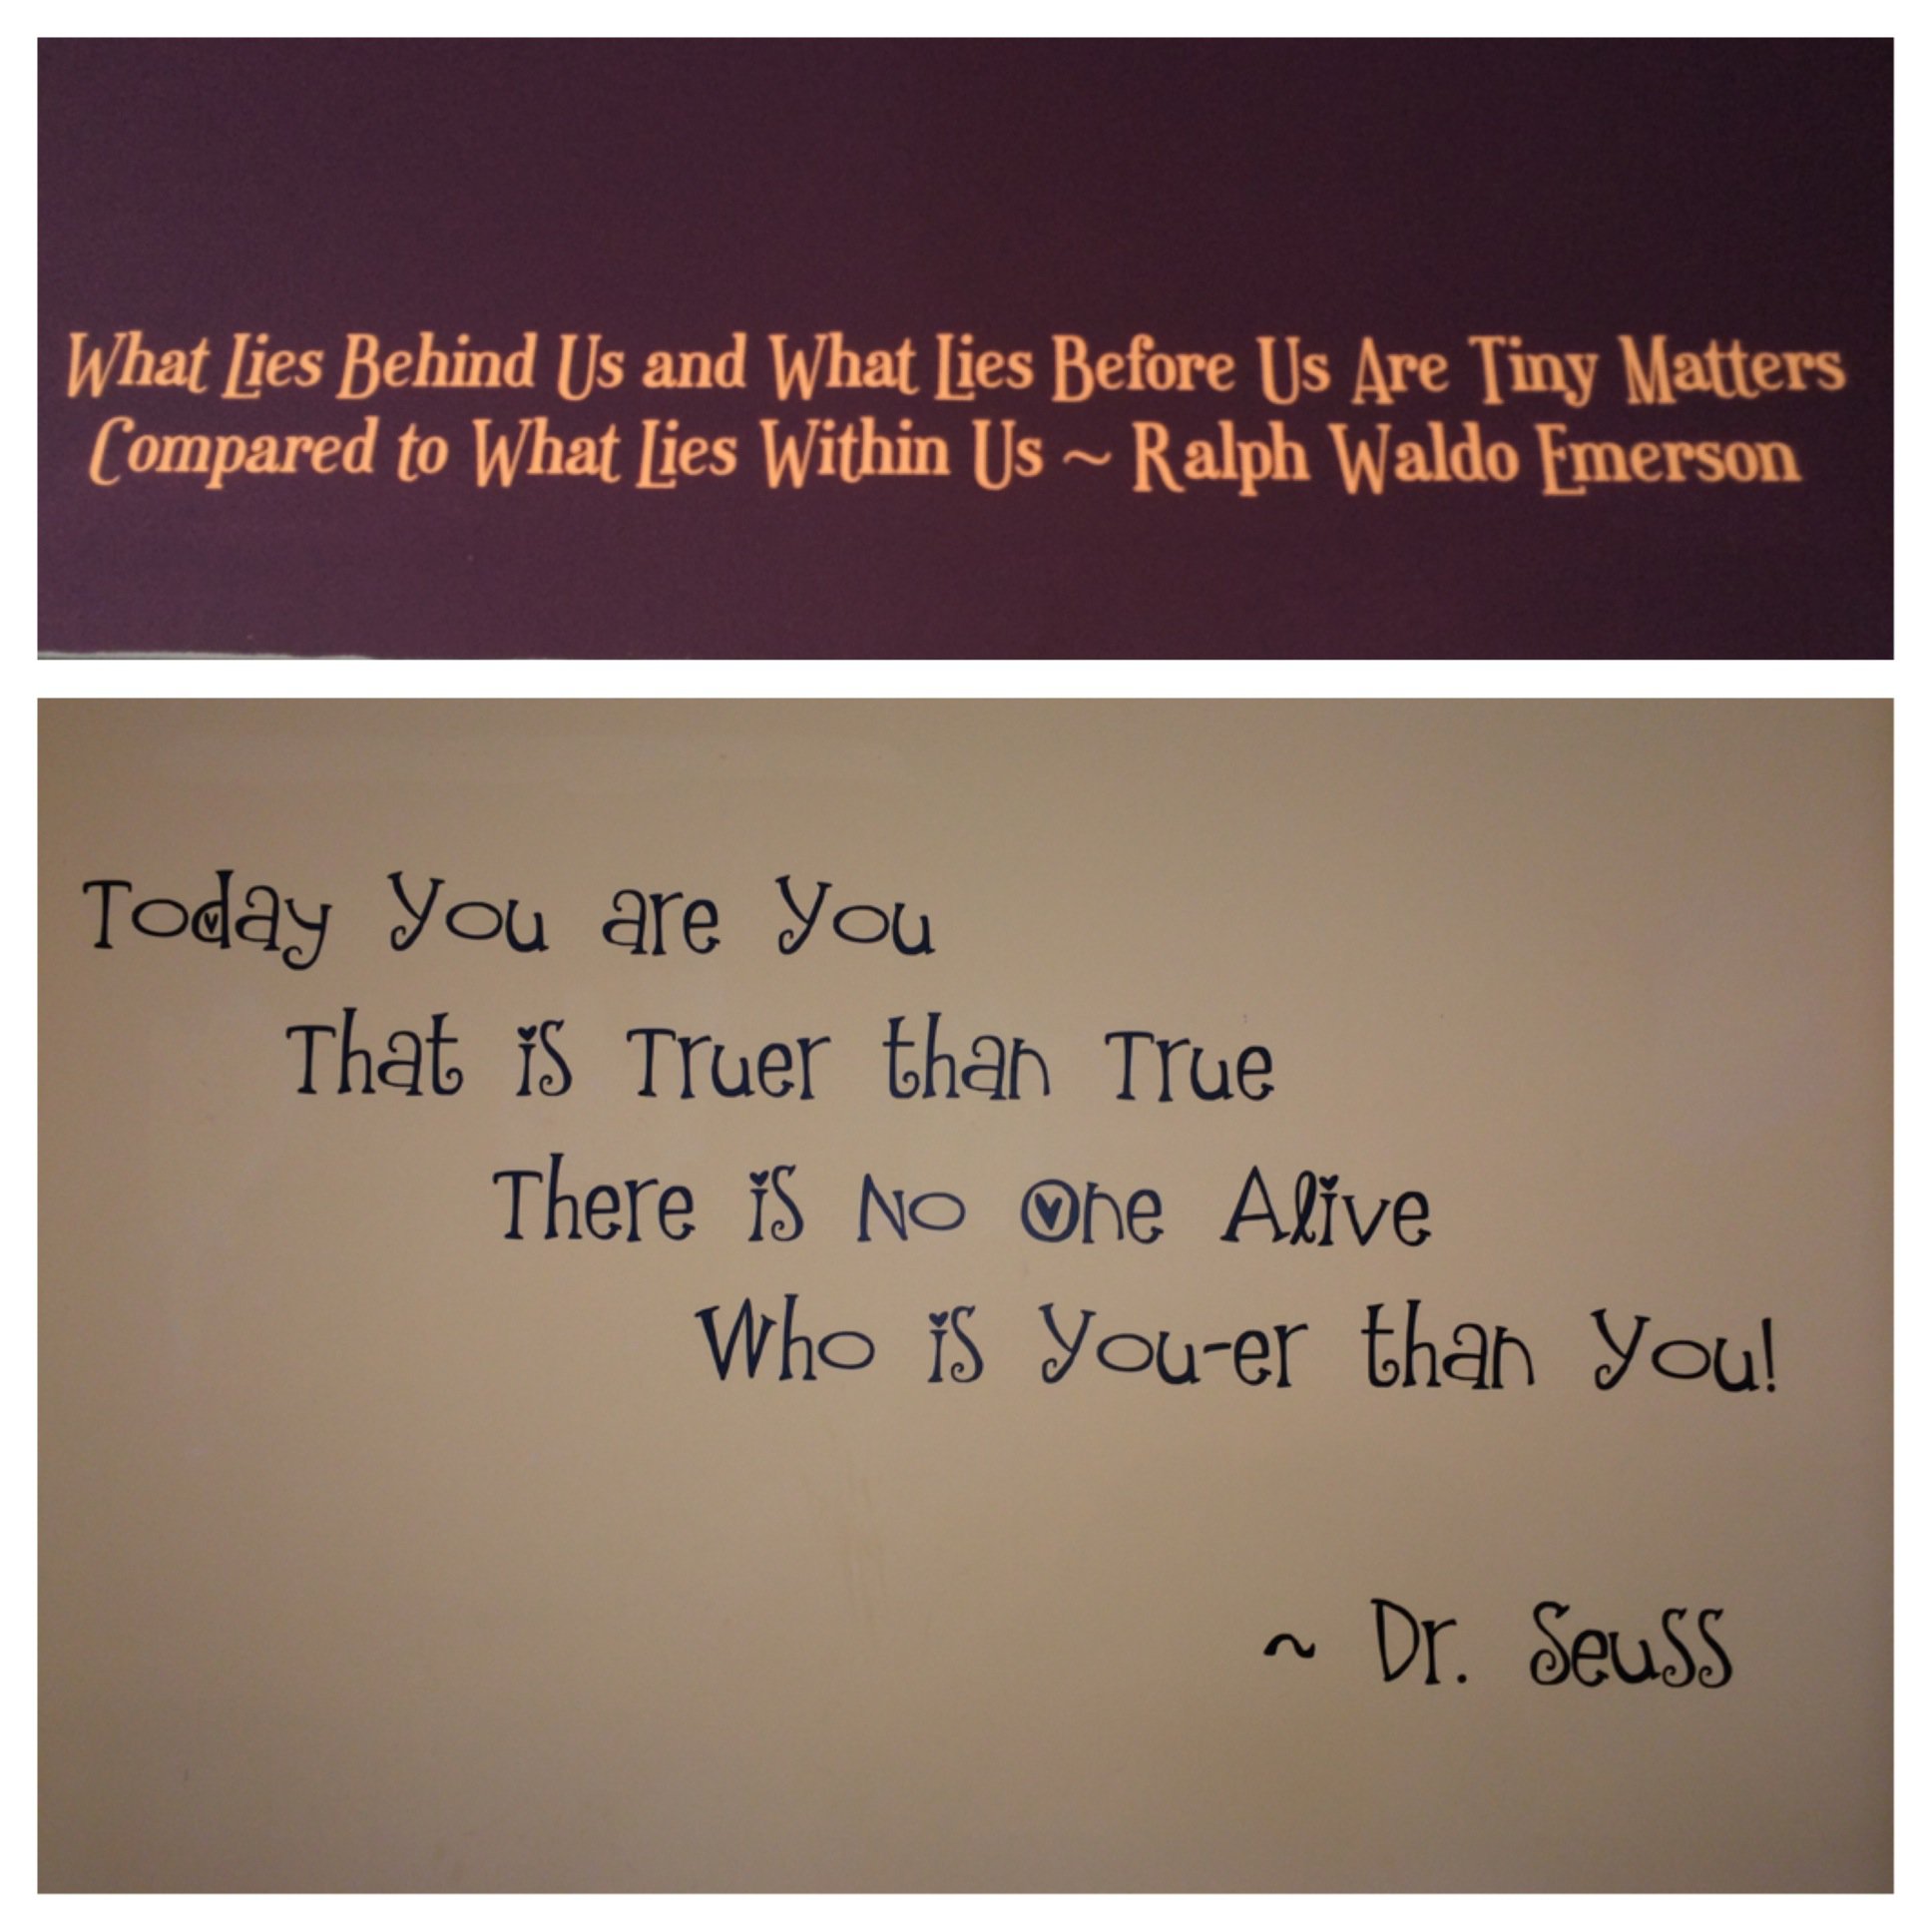 What Lies Behind Us and What Lies Before Us Are Tiny Matters
Compared to What Lies Within Us ~ Ralph Waldo Emerson
Today You are You
That is Truer than True
There is No One Alive
Who is You-er than You!
~ Dr. Seuss